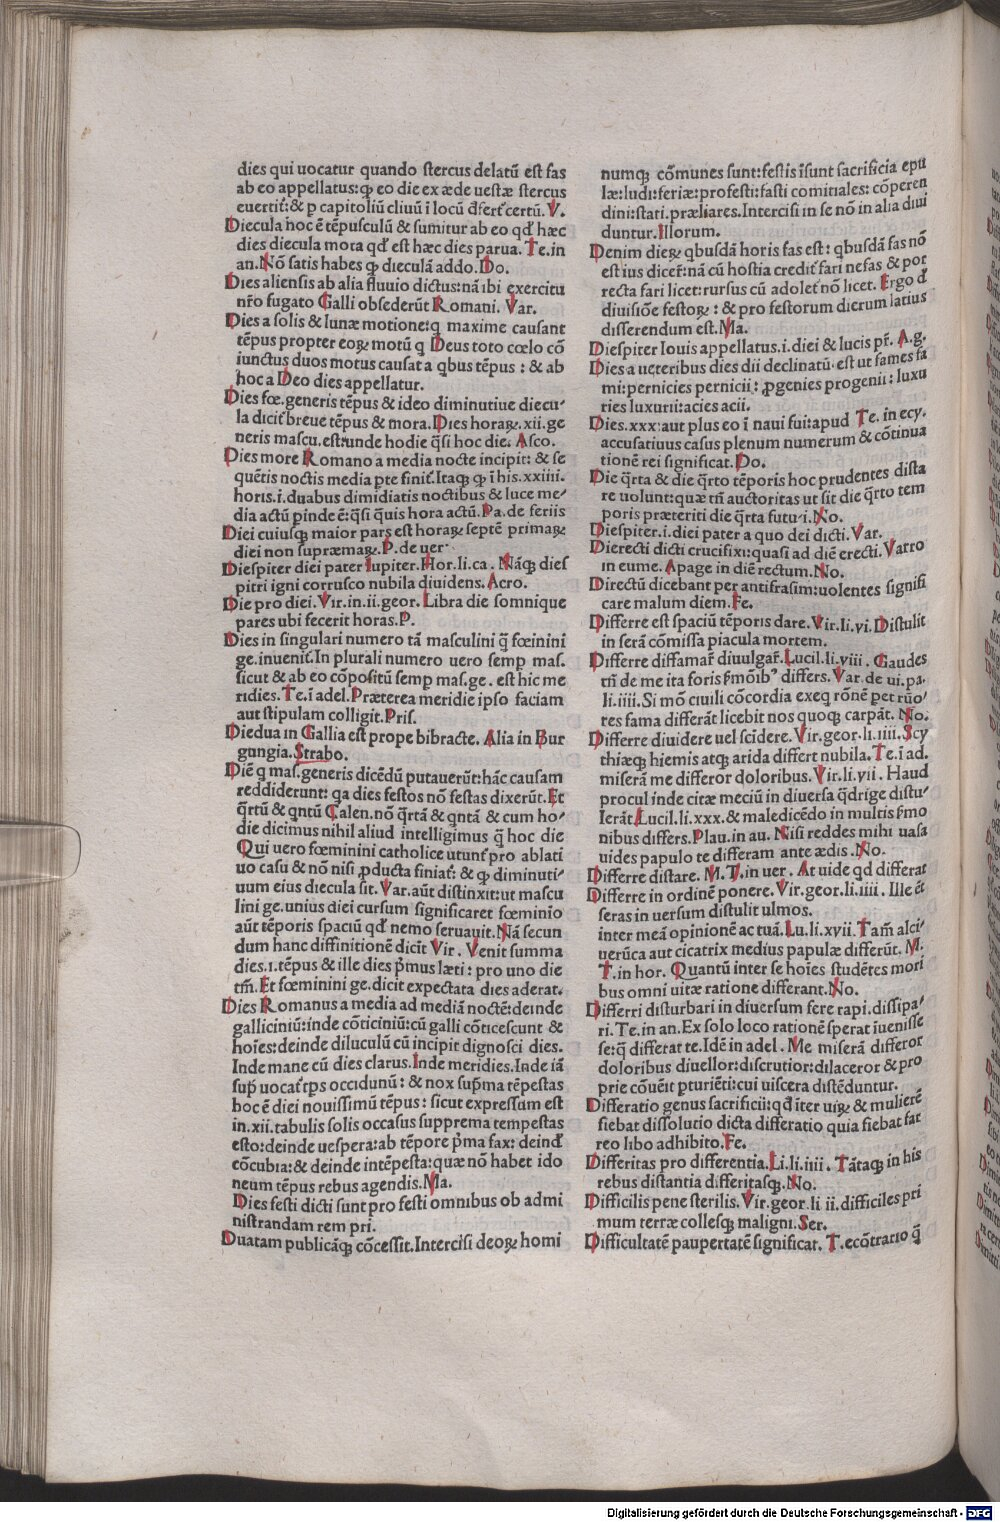 dies qui uocatur quando stercus delatū est fas
ab eo appellatus:ꝙ eo die ex æde uestæ stercus
euertit᷑:& p capitoliū cliuū ī locū đfert᷑ certū.V.
Diecula hoc ē tēpusculū & sumitur ab eo qđ hæc
dies diecula mora qđ est hæc dies parua. Te.in
an.Nō satis habes ꝙ dieculā addo.Do.
Dies aliensis ab alia fluuio dictus:nā ibi exercitu
nr̄o fugato Galli obsederūt Romani. Var.
Dies a solis & lunæ motione:q̄ maxime causant
tēpus propter eoꝝ motū q̄ Deus toto cœlo cō
iunctus duos motus causat a q̄bus tēpus : & ab
hoc a Deo dies appellatur.
Dies fœ.generis tēpus & ideo diminutiue diecu⸗
la dicit᷑ breue tēpus & mora.Dies horaꝝ.xii.ge
neris mascu.est:unde hodie q̄si hoc die. Asco.
Dies more Romano a media nocte incipit: & se
quētis noctis media pte finit᷑.Itaqꝫ ꝙ ī his.xxiiii.
horis.i.duabus dimidiatis noctibus & luce me⸗
dia actū pinde ē:q̄si q̄uis hora actū.Pa.de feriis
Diei cuiusqꝫ maior pars est horaꝝ septē primaꝝ
diei non supræmaꝝ.P.de uer.
Diespiter diei pater Iupiter.Hor.li.ca. Nāqꝫ dies
pitri igni corrusco nubila diuidens.Acro.
Die pro diei.Vir.in.ii.geor.Libra die somnique
pares ubi fecerit horas.P.
Dies in singulari numero tā masculini q̄ fœinini
ge.inuenit᷑.In plurali numero uero semp mas.
sicut & ab eo cōpositū semp mas.ge. est hic me
ridies.Te.ī adel.Præterea meridie ipso faciam
aut stipulam colligit.Pris.
Diedua in Gallia est prope bibracte. Alia in Bur
gungia.Strabo.
Diē q̄ mas.generis dicēdū putauerūt:hāc causam
reddiderunt: q̄a dies festos nō festas dixerūt.Et
q̄rtū & qntū Calen.nō q̄rtā & qntā & cum ho⸗
die dicimus nihil aliud intelligimus q̄ hoc die
Qui uero fœminini catholice utunt᷑ pro ablati
uo casu & nō nisi ꝓducta finiat᷑: & ꝙ diminuti⸗
uum eius diecula sit. Var.aūt distinxit:ut mascu
lini ge.unius diei cursum significaret fœminio
aūt tēporis spaciū qđ nemo seruauit.Nā secun
dum hanc diffinitionē dicit Vir . Venit summa
dies.i.tēpus & ille dies p̄mus læti : pro uno die
tm̄.Et fœminini ge.dicit expectata dies aderat.
Dies Romanus a media ad mediā noctē:deinde
galliciniū:inde cōticiniū:cū galli cōticescunt &
hoīes:deinde diluculū cū incipit dignosci dies.
Inde mane cū dies clarus.Inde meridies.Inde iā
sup̄ uocat᷑ tps occidunū : & nox sup̄ma tēpestas
hoc ē diei nouissimū tēpus : sicut expressum est
in.xii.tabulis solis occasus supprema tempestas
esto:deinde uespera:ab tēpore p̄ma fax: deinđ
cōcubia:& deinde intēpesta:quæ nō habet ido
neum tēpus rebus agendis.Ma.
Dies festi dicti sunt pro festi omnibus ob admi
nistrandam rem pri.
Duatam publicāqꝫ cōcessit.Intercisi deoꝝ homi
numqꝫ cōmunes sunt:festis īsunt sacrificia epu
læ:ludi:feriæ:profesti:fasti comitiales: cōperen
dini:stati.præliares.Intercisi in se nō in alia diui
duntur.Illorum.
Denim dieꝝ qbusdā horis fas est : qbusdā fas nō
est ius dicer̄:nā cū hostia credit᷑ fari nefas & por
recta fari licet:rursus cū adolet᷑ nō licet. Ergo đ
diuisiōe festoꝝ : & pro festorum dierum latius
disserendum est.Ma.
Diespiter Iouis appellatus.i.diei & lucis pr̄. A.g.
Dies a ueteribus dies dii declinatū.est ut fames fa
mi:pernicies pernicii: ꝓgenies progenii: luxu
ries luxurii:acies acii.
Dies.xxx:aut plus eo ī naui fui:apud Te.in ecy.
accusatiuus casus plenum numerum & cōtinua
tionē rei significat.Do.
Die q̄rta & die q̄rto tēporis hoc prudentes dista
re uolunt:quæ tn̄ auctoritas ut sit die q̄rto tem
poris præteriti die q̄rta futuri.No.
Diespiter.i.diei pater a quo dei dicti.Var.
Dierecti dicti crucifixi:quasi ad diē erecti.Varro
in eume. Apage in diē rectum.No.
Directū dicebant per antifrasim:uolentes signifi
care malum diem.Fe.
Differre est spaciū tēporis dare.Vir.li.vi.Distulit
in serā cōmissa piacula mortem.
Differre diffamar̄ diuulgar̄.Lucil.li.viii. Gaudes
tn̄ de me ita foris s̄mōibꝰ differs.Var.de ui.pa.
li.iiii.Si mō ciuili cōcordia exeq̄ rōnē per rūo⸗
res fama differāt licebit nos quoqꝫ carpāt. No.
Differre diuidere uel scidere.Vir.geor.li.iiii.Scy
thiæqꝫ hiemis atqꝫ arida differt nubila.Te.ī ad.
miserā me differor doloribus.Vir.li.vii. Haud
procul inde citæ meciū in diuersa q̄drige distu⸗
lerāt.Lucil.li.xxx.& maledicēdo in multis s̄mo
nibus differs.Plau.in au. Nisi reddes mihi uasa
uides papulo te differam ante ædis.No.
Differre distare. M.T.in uer. At uide qđ differat
Differre in ordinē ponere. Vir.geor.li.iiii. Ille ēt
seras in uersum distulit ulmos.
inter meā opinionē ac tuā.Lu.li.xvii. Tam̄ alci⸗
uerūca aut cicatrix medius papulæ differūt. M.
T.in hor. Quantū inter se hoīes studētes mori
bus omni uitæ ratione differant.No.
Differri disturbari in diuersum fere rapi.dissipa⸗
ri.Te.in an.Ex solo loco rationē sperat īuenisse
se:q̄ differat te.Idē in adel. Me miserā differor
doloribus diuellor:discrutior:dilaceror & pro
prie cōuēit pturiēti:cui uiscera distēduntur.
Differatio genus sacrificii:qđ īter uiꝝ & mulierē
fiebat dissolutio dicta differatio quia fiebat far
reo libo adhibito.Fe.
Differitas pro differentia.Li.li.iiii. Tātaqꝫ in his
rebus distantia differitasqꝫ.No.
Difficilis pene sterilis.Vir.geor.li ii.difficiles pri
mum terræ collesqꝫ maligni.Ser.
Difficultatē paupertatē significat. T.ecōtrario q̄
Digitalisierung gefördert durch die Deutsche Forschungsgemeinschaft - DFG